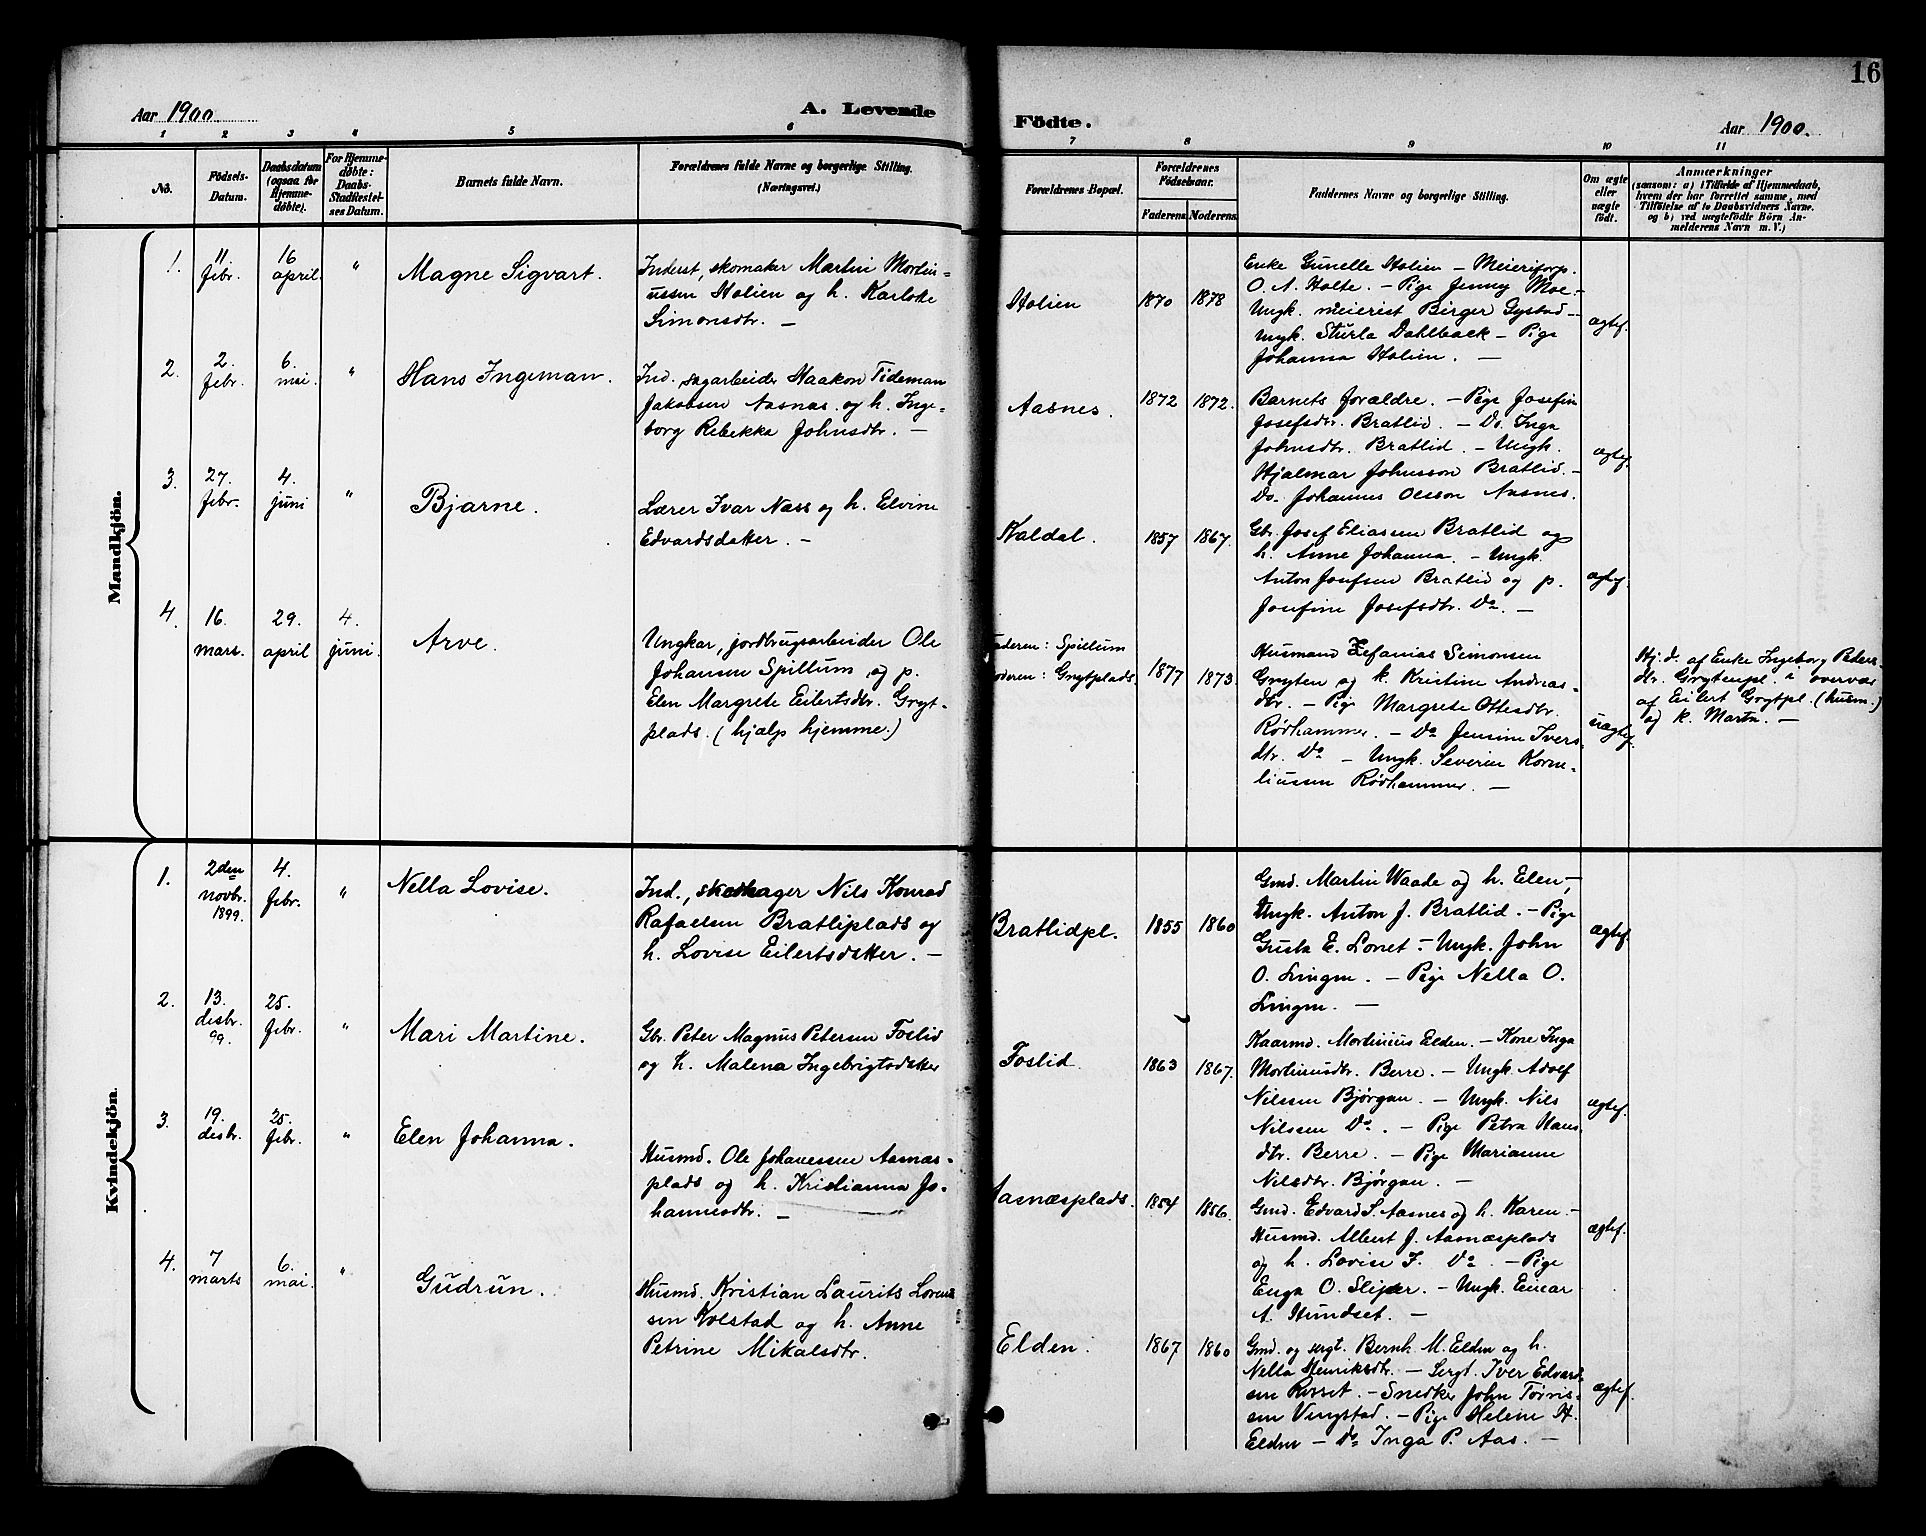 16
Aar 1900.
A. Levende
Födte.
Aar 1900.
1 2 3 4 5 6 7 8 9 10 11
No.
Födsels-
Datum.
Daabsdatum
(ogsaa for
Hjemme-
døbte).
For Hjemme-
døbte:
Daabs-
Stadfæstel-
ses Datum.
Barnets fulde Navn.
Forældrenes fulde Navne og borgerlige Stilling.
(Næringsvei.)
Forældrenes Bopæl.
Forældrenes
Födselsaar.
Faderens
Moderens.
Faddernes Navne og borgerlige Stilling.
Om ægte
eller
uægte
födt.
Anmærkninger
(saasom: a) i Tilfælde af Hjemmedaab,
hvem der har forrettet samme, med
Tilföielse af to Daabsvidners Navne.
og b) ved uægtefödte Börn An-
melderens Navn m. V.)
Mandkjön.
1.
11.
febr.
16
april
"
Magne Sigvart.
Inderst, skomaker Martin Mortin-
ussen Holien og h. Karloke
Simonsdtr. —
Holien
1870
1878
Enke Gunelle Holien — Meieriforp.
O. A. Holte. — Pige Jenny Moe —
Ungk. meierist Birger Gystad —
Ungk. Sturla Dahlback — Pige
Johanna Holien. —
ægtef.
2.
2.
febr.
6.
mai.
"
Hans Ingeman.
Ind. sagarbeider Haakon Tideman
Jakobsen Aasnas og h. Inge-
borg Rebekka Johnsdtr. —
Aasnes.
1872
1872.
Barnets forældre. — Pige Josefin
Josefsdtr. Bratlid. — Do. Inga
Johnsdtr. Bratlid. — Ungk.
Hjalmar Johnsson Bratlid. —
Do. Johannes Olsson Aasnes.
ægtef.
3.
27.
febr.
4.
juni
"
Bjarne.
Lærer Ivar Næss og h. Elvine
Edvardsdatter. —
Kaldal.
1857
1867.
Gbr. Josef Eliassen Bratlid og
h. Anne Johanna. — Ungk.
Anton Josefsen Bratlid og p.
Josefine Josefsdtr. Do. —
ægtef.
4.
16.
mars.
29.
april
4.
juni.
Arve.
Ungkar, jordbrugsarbeider Ole
Johansen Spillum, og p.
Elen Margrete Eilertsdtr. Gryt-
plads. (hjælp hjemme.)
Faderen: Spillum
Moderen: Grytplads.
1877
1873.
Husmand Zefanias Simonsen
Gryten og k. Kristine Andreas-
dtr. — Pige Margrete Ottesdtr.
Rødhammer. — Do Jensine Ivers-
dtr. Do — Ungk. Severin Korne-
liussen Rødhammer. —
uægtef.
Hj. d. af Enke Ingeborg Peders-
dtr. Grytenpl. i overvær
af Eilert Grytpl. (husm.)
og k. Marta. —
Kvindekjön.
1.
2den
novbr.
1899.
4.
febr.
"
Nella Lovise.
Ind., Nils Konrad
Rafaelsen Bratliplads og
h. Lovise Eilertsdatter. —
Bratlidpl.
1855
1860
Gmd. Martin Waade og h. Elen —,
Ungk. Anton J. Bratlid. — Pige
Gusta E. Lonet — Ungk. John
O. Lingen. — Pige Nella O.
Lingen. —
ægtef.
2.
13.
desbr.
99.
25.
febr.
"
Mari Martine.
Gbr. Peter Magnus Petersen Foslid
og h. Malena Ingebrigtsdatter
Foslid.
1863
1867.
Kaarmd. Mortinius Elden. — Kone Inga
Mortinusdtr. Berre. — Ungk. Adolf
Nilssen Bjørgan. — Ungk. Nils
Nilssen Do. — Pige Petra Hans-
dtr. Berre. — Pige Marianne
Nilsdtr. Bjørgan. —
ægtef.
3.
19.
desbr.
25.
febr.
"
Elen Johanna.
Husmd. Ole Johanessen Aasnas-
plads og h. Kristianna Jo-
hannesdtr. —
Aasnæsplads.
1854
1856.
Gmd. Edvard S. Aasnes og h. Karen. —
Husmd. Albert J. Aasnæsplads
og h. Lovise F. Do. — Pige
Enga O. Slipper. — Ungk. Einar
A. Hundset. —
ægtef.
4.
7
marts
6.
mai.
"
Gudrun.
Husmd. Kristian Laurits Loren-
sen Kolstad og h. Anne
Petrine Mikalsdtr.
Elden.
1867
1860
Gmd. og sergt. Bernh. M. Elden og h.
Nella Henriksdtr. — Sergt. Iver Edvard-
sen Rosset. — Snedker John Tørris-
sen Vengstad. — Pige Helene H.
Elden — Do Inga P. Aas. —
ægtef.